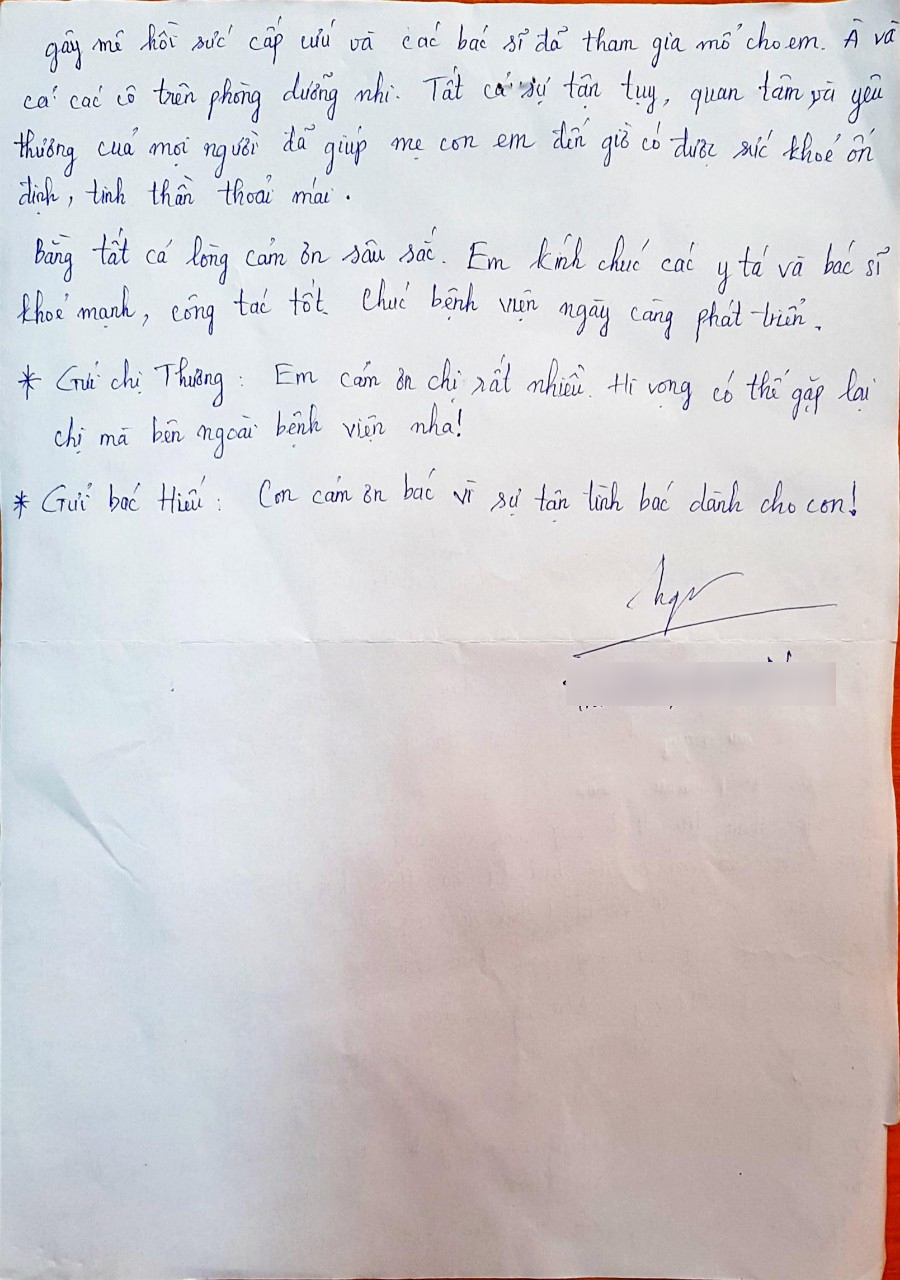 gây mê hồi sức cấp cứu và các bác sĩ đã tham gia mổ cho em. À và
cả các cô trên phòng dưỡng nhi. Tất cả sự tận tụy, quan tâm và yêu
thương của mọi người đã giúp mẹ con em đến giờ có được sức khoẻ ổn
định, tinh thần thoải mái.
Bằng tất cả lòng cảm ơn sâu sắc. Em kính chúc các y tá và bác sĩ
khoẻ mạnh, công tác tốt. Chúc bệnh viện ngày càng phát triển.
* Gửi chị Thương: Em cảm ơn chị rất nhiều. Hi vọng có thể gặp lại
chị mà bên ngoài bệnh viện nha!
* Gửi bác Hiếu: Con cảm ơn bác vì sự tận tình bác dành cho con!